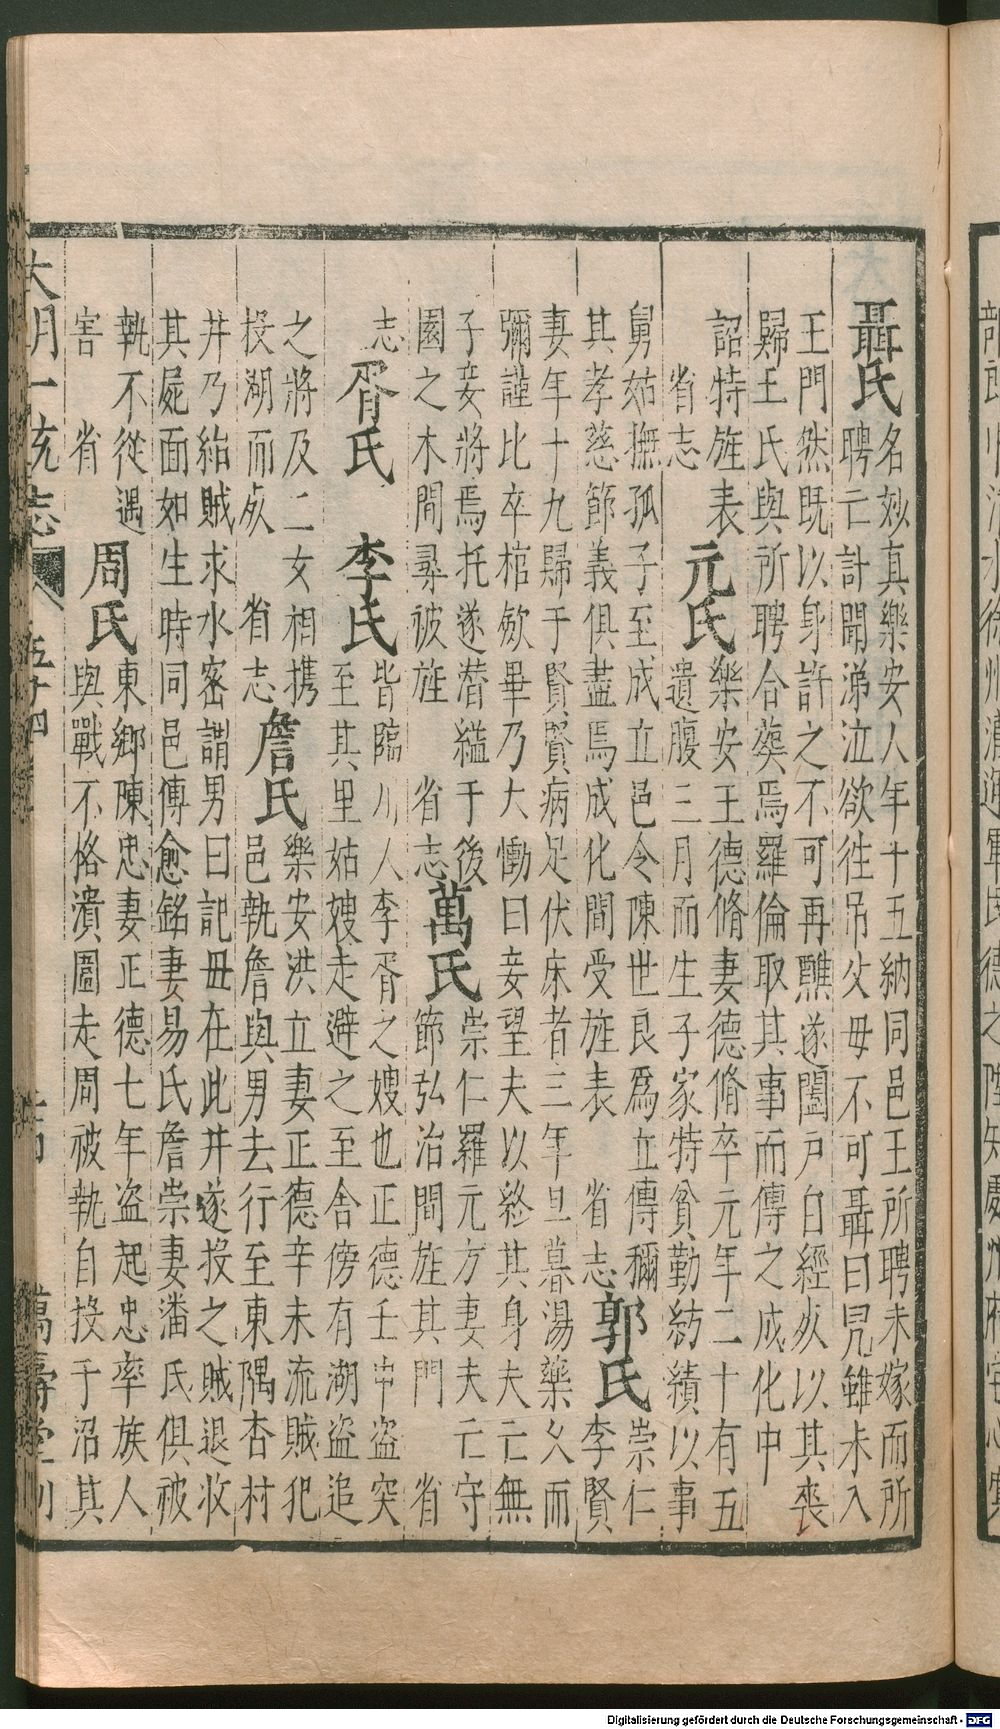 聶氏
名妙真樂安人年十五納同邑王所聘未嫁而所
聘亡計聞涕泣欲徃吊父毋不可聶曰児雖未入
王門然既以身許之不可再醮遂闔戸自經死以其喪
歸王氏與所聘合葬焉羅倫取其事而傳之成化中
詔特旌表
省志
元氏
樂安王德脩妻德脩卒元年二十有五
遺腹三月而生子家特貧勤紡績以事
舅姑撫孤子至成立邑令陳世良爲立傳穪
其孝慈節義俱盡焉成化間受旌表 省志
郭氏
崇仁
李賢
妻年十九歸于賢賢病足伏床者三年旦暮湯藥久而
彌謹比卒棺歛畢乃大慟曰妾望夫以終其身夫亡無
子妾將焉托遂潜縊于後
園之木間尋被旌 省志
萬氏
崇仁羅元方妻夫亡守
節弘治間旌其門 省
志
胥氏 李氏
皆臨川人李胥之嫂也正德壬申盗突
至其里姑嫂走避之至舍傍有湖盗追
之將及二女相携
投湖而死 省志
詹氏
樂安洪立妻正德辛未流賊犯
邑執詹與男去行至東隅杏村
井乃紿賊求水密謂男曰記毋在此井遂投之賊退收
其屍面如生時同邑傅愈銘妻易氏詹崇妻潘氏俱被
執不從遇
害 省
周氏
東鄉陳忠妻正德七年盗起忠率族人
與戰不恪潰圍走周被執自投于沼其
大明一統志 五十四 萬壽堂刊
Digitalisierung gefördert durch die Deutsche Forschungsgemeinschaft - DFG